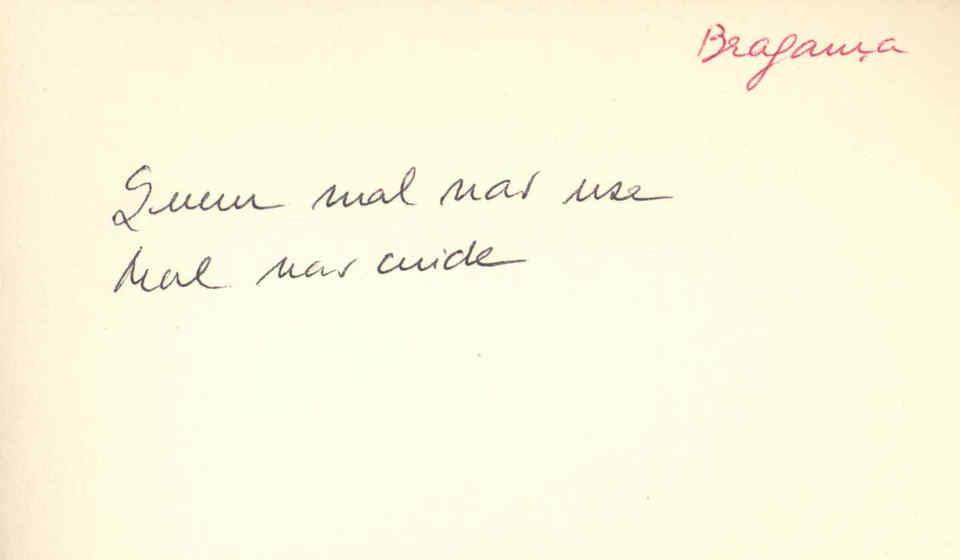 Bragança
Quem mal não use
Mal não cuide